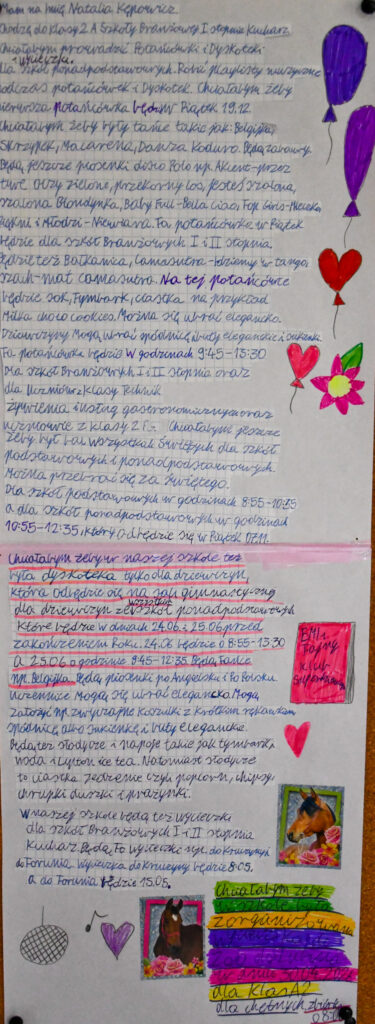 Mam na imię Natalia Kępowicz.
Chodzę do klasy 2 A Szkoły Branżowej I stopnia Kucharz.
Chciałabym prowadzić Potańcówki i Dyskoteki
i wycieczki.
Dla szkół ponadpodstawowych. Robić playlisty muzyczne
podczas potańcówek i Dyskotek. Chciałabym żeby
pierwsza potańcówka będzie w Piątek 19.12.
Chciałabym żeby były tańce takie jak: Belgijka,
Skrzypek, Macarena, Danza Kuduro. Będą zabawy.
Będą jeszcze piosenki disco Polo np. Akcent-przez
twe oczy zielone, przekorny los, jesteś szalona,
szalona Blondynka, Baby Full-Bella Ciao, Top Girls-Mleczko,
Piękni i Młodzi-Niewiara. Ta potańcówka w Piątek
będzie dla szkół Branżowych I i II stopnia.
Będzie też Bałkanica,
szach-mat Camasutra. Na tej potańcówce
będzie sok, Tymbark, ciastka na przykład
Milka choco cookies. Można się ubrać elegancko.
Dziewczyny Mogą ubrać spódnice, buty eleganckie i sukienki.
Ta potańcówka będzie w godzinach 9:45-13:30
Dla szkół Branżowych I i II stopnia oraz
dla Uczniów z klasy Technik
żywienia i usług gastronomicznych oraz
uczniowie z klasy 2 F. Chciałabym jeszcze
żeby był bal wszystkich Świętych dla szkół
podstawowych i ponadpodstawowych.
Można przebrać się za Świętego.
Dla szkół podstawowych w godzinach 8:55-10:25
a dla szkół ponadpodstawowych w godzinach
10:55-12:35, który odbędzie się w Piątek 07.11.
Chciałabym żeby w naszej szkole też
była dyskoteka tylko dla dziewczyn,
która odbędzie się na sali gimnastycznej
dla dziewczyn ze wszystkich szkół ponadpodstawowych
które będzie w dniach 24.06 i 25.06 przed
zakończeniem Roku. 24.06 będzie o 8:55-13:30
a 25.06 o godzinie 9:45-12:35. Będą Tańce
np. Belgijka. Będą piosenki po Angielsku i Po Polsku.
Uczennice Mogą się ubrać elegancko. Mogą
założyć np. zwyczajne koszulki z krótkim rękawkiem,
spódnicę albo sukienkę i buty eleganckie.
Będą też słodycze i napoje takie jak tymbark,
woda i Lipton ice tea. Natomiast słodycze
to ciastka jedzenie czyli popcorn, chipsy,
chrupki duszki i prażynki.
W naszej szkole będą też wycieczki
dla szkół Branżowych I i II stopnia
Kucharz. Będą To wycieczki np. do Kruszyn
do Torunia. Wycieczka do Kruszyny będzie 8.05.
a do Torunia będzie 15.05.
Chciałabym żeby
w szkole była
zorganizowana
dla klas A2
dla chętnych